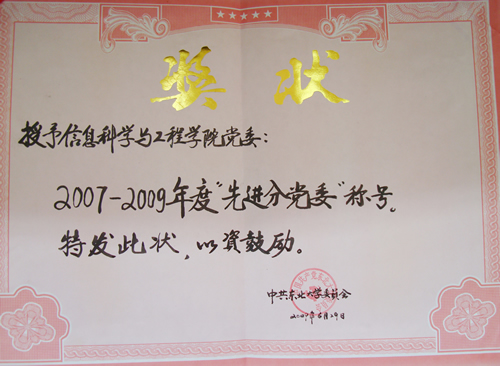 奖状
授予信息科学与工程学院党委：
2007-2009年度“先进分党委”称号。
特发此状，以资鼓励。
中共东北大学委员会